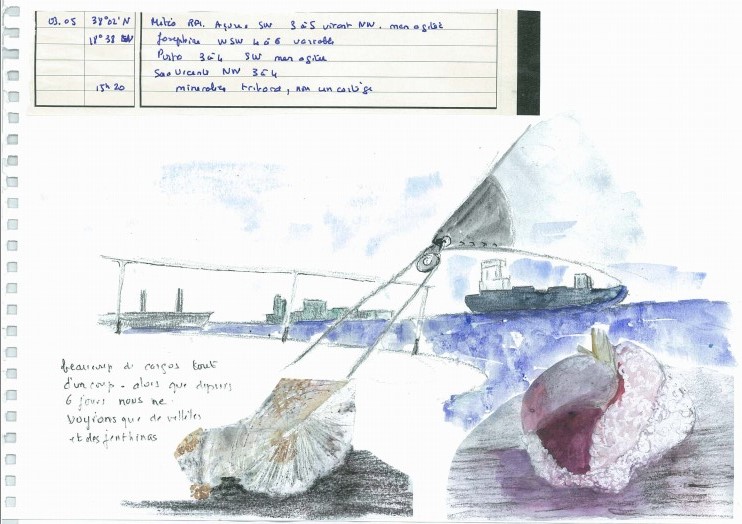 03.05 38°02'N Météo RFI. Açores SW 3 à 5 virant NW. mer agitée
18°38 W Josephine WSW 4 à 6 variable
Porto 3 à 4 SW mer agitée
Sao Vicente NW 3 à 4
15h20 mineralier tribord, non un cortège
beaucoup de cargos tout
d'un coup - alors que depuis
6 jours nous ne
voyions que de vellèles
et des janthinas